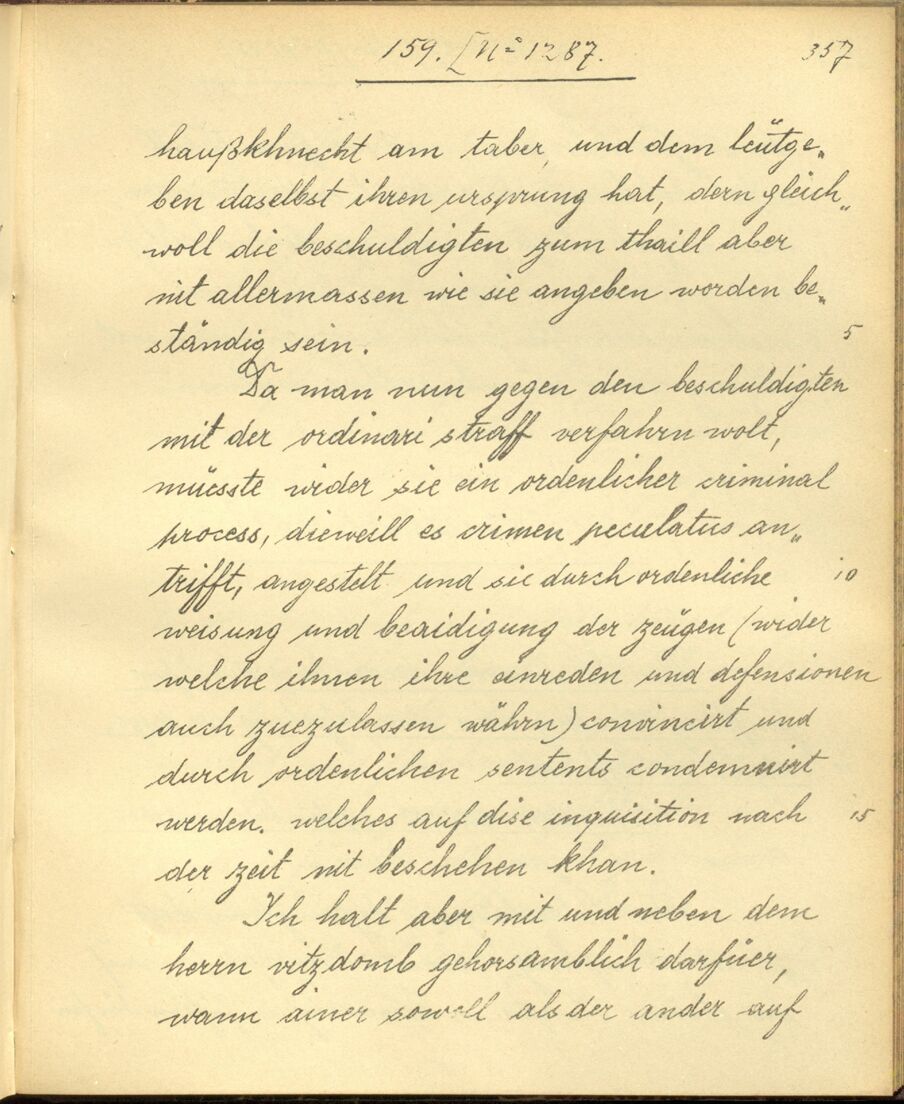 159. [Nº 1287.
357
haußkhnecht am taber, und dem leütge„
ben daselbst ihren ursprung hat, dern gleich„
woll die beschuldigten zum thaill aber
nit allermassen wie sie angeben worden be„
ständig sein.
5
Da man nun gegen den beschuldigten
mit der ordinari straff verfahrn wolt,
müesste wider sie ein ordenlicher criminal
process, dieweill es crimen peculatus an„
trifft, angestelt und sie durch ordenliche
10
weisung und beaidigung der zeügen (wider
welche ihnen ihre einreden und defensionen
auch zuezulassen währn) convincirt und
durch ordenlichen sentents condemnirt
werden. welches auf dise inquisition nach
15
der zeit nit beschehen khan.
Ich halt aber mit und neben dem
herrn vitzdomb gehorsamblich darfüer,
wann ainer sowoll als der ander auf